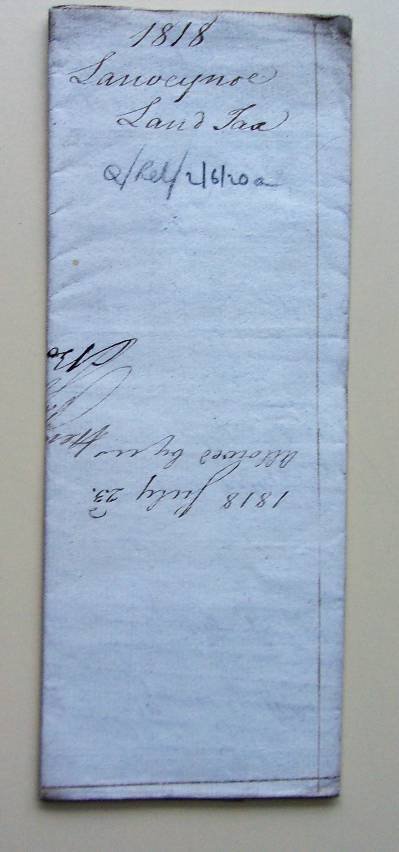 1818
Lanvcynoe
Land Tax
Q/Rel/2/6/20a
1818 July 23.
allowed by us